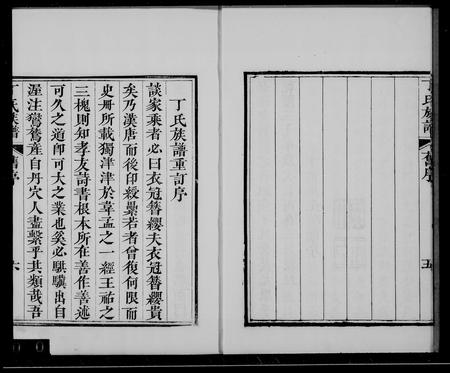 丁氏族譜
舊序
五
丁氏族譜重訂序
談家乘者必曰衣冠簪纓夫衣冠簪纓貴
矣乃漢唐而後印綬纍若者曾復何限而
史冊所載獨津津於韋孟之一經王祐之
三槐則知孝友詩書根本所在善作善述
可久之道卽可大之業也奚必騏驥出自
渥注鸞鷟產自丹穴人盡繫乎其類哉吾
丁氏族譜
舊序
六